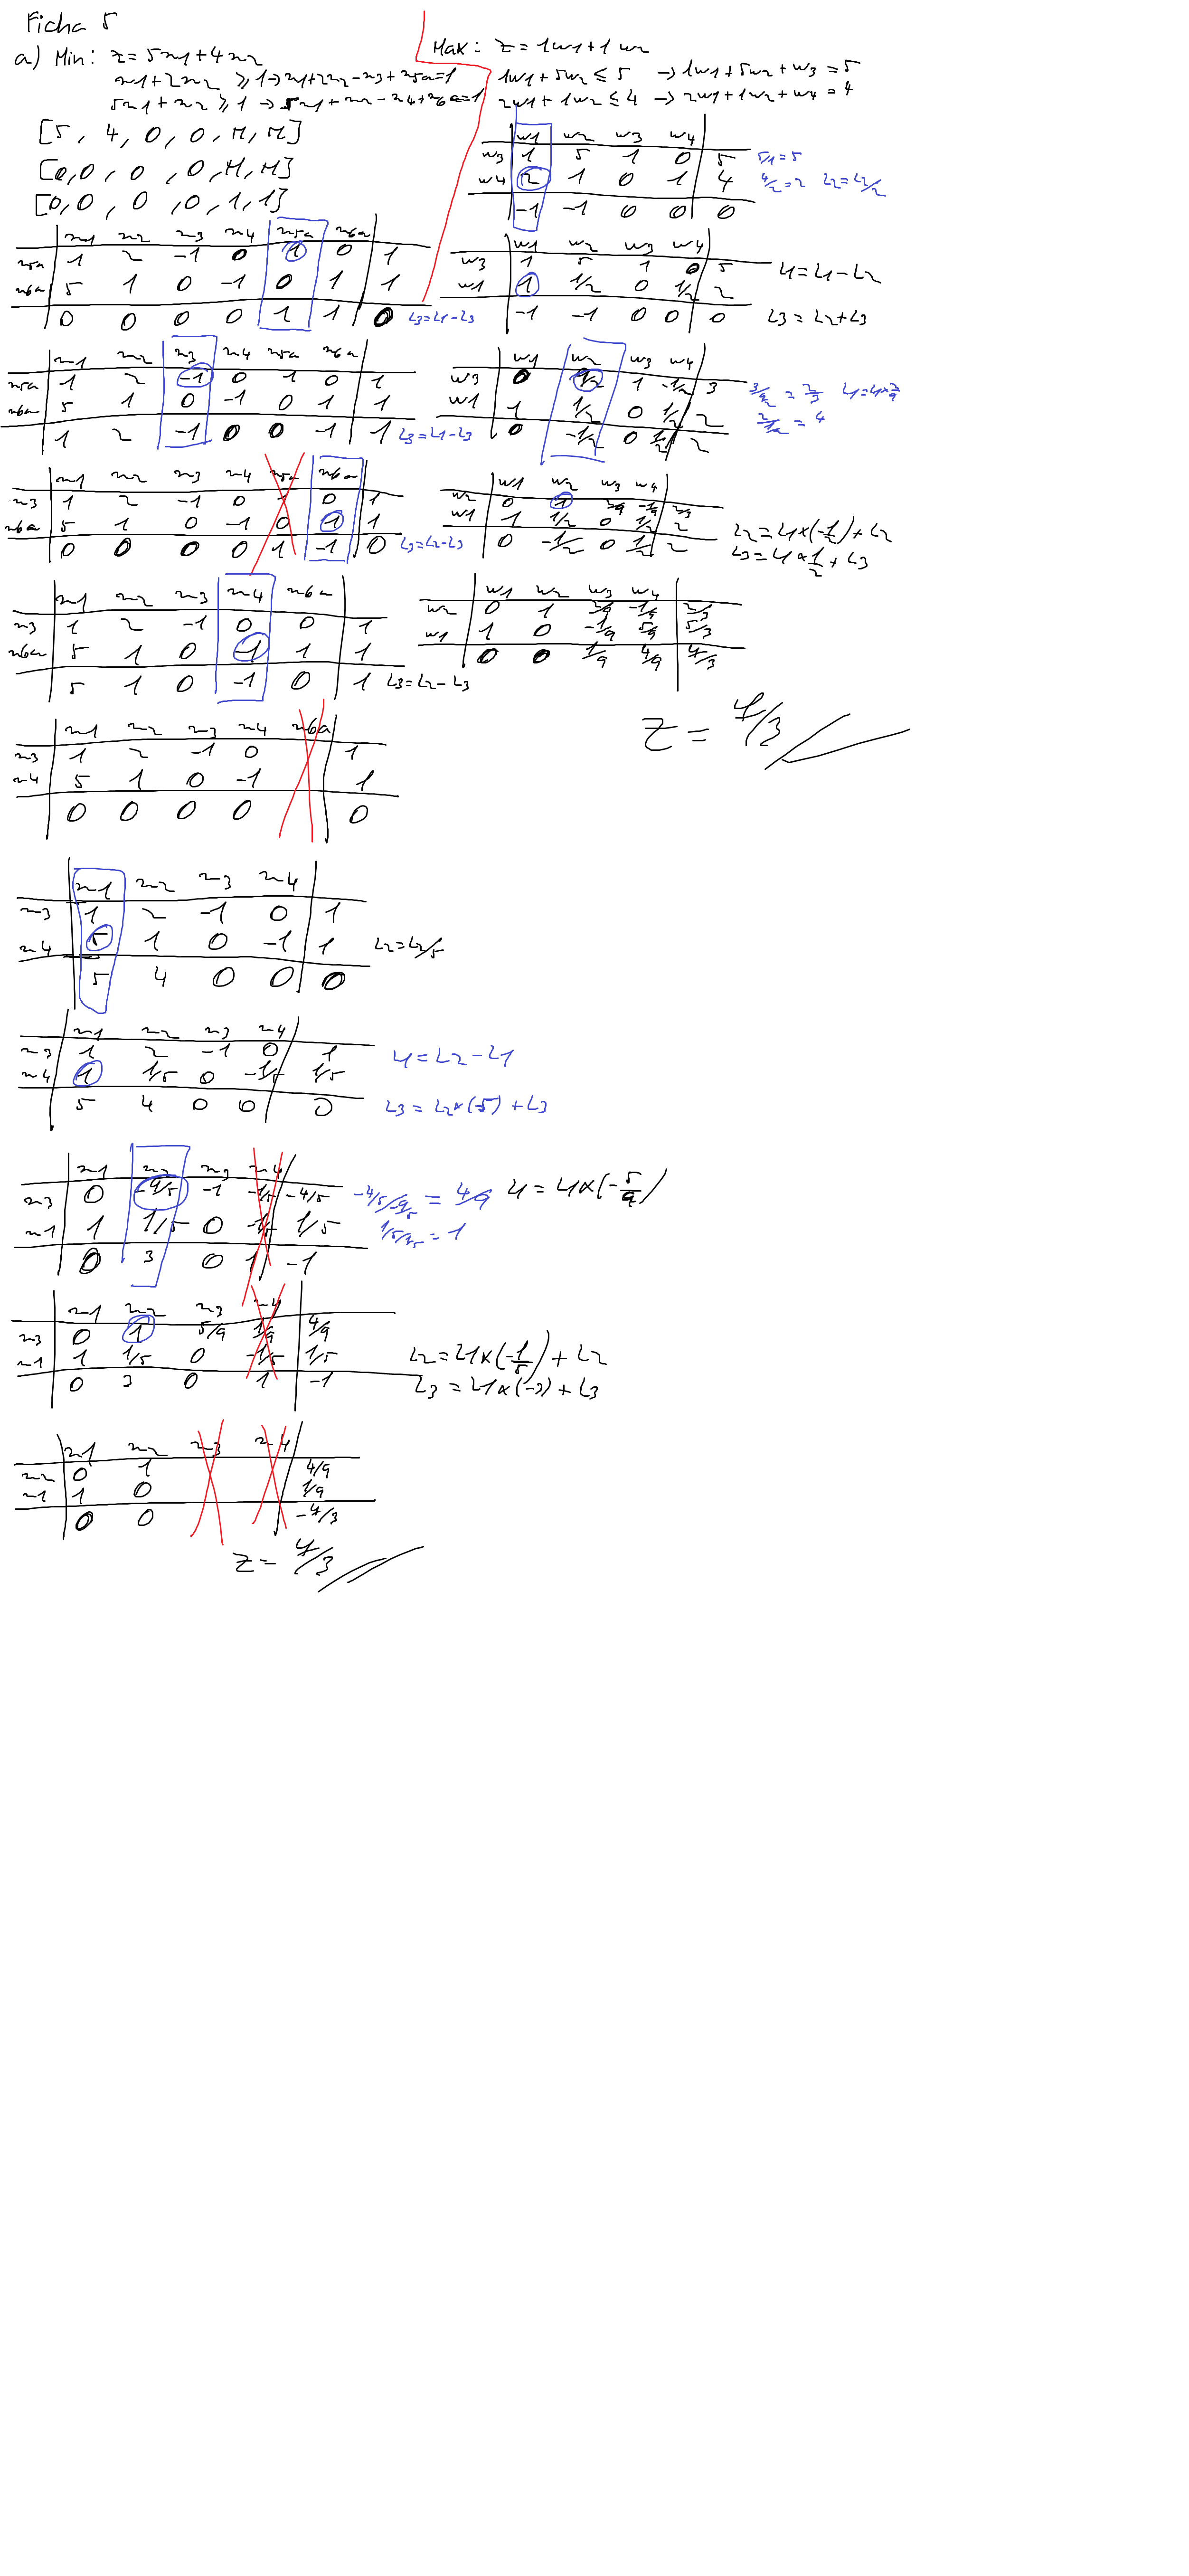 Ficha 5
a) Min: z = 5x1 + 4x2
x1 + 2x2 ≥ 1 → x1 + 2x2 - x3 + x5a = 1
5x1 + x2 ≥ 1 → 5x1 + x2 - x4 + x6a = 1
[5, 4, 0, 0, M, M]
[0, 0, 0, 0, M, M]
[0, 0, 0, 0, 1, 1]
x1 x2 x3 x4 x5a x6a
x5a 1 2 -1 0 1 0 1
x6a 5 1 0 -1 0 1 1
0 0 0 0 1 1 0 L3=L1-L3
x1 x2 x3 x4 x5a x6a
x5a 1 2 -1 0 1 0 1
x6a 5 1 0 -1 0 1 1
1 2 -1 0 0 -1 1 L3=L1-L3
x1 x2 x3 x4 x5a x6a
x3 1 2 -1 0 1 0 1
x6a 5 1 0 -1 0 1 1
0 0 0 0 1 -1 0 L3=L2-L3
x1 x2 x3 x4 x6a
x3 1 2 -1 0 0 1
x6a 5 1 0 -1 1 1
5 1 0 -1 0 1 L3=L2-L3
x1 x2 x3 x4 x6a
x3 1 2 -1 0 1
x4 5 1 0 -1 1
0 0 0 0 0
x1 x2 x3 x4
x3 1 2 -1 0 1
x4 5 1 0 -1 1 L2=L2/5
5 4 0 0 0
x1 x2 x3 x4
x3 1 2 -1 0 1 L1=L2-L1
x4 1 1/5 0 -1/5 1/5
5 4 0 0 0 L3=L2×(-5)+L3
x1 x2 x3 x4
x3 0 -9/5 -1 -1/5 -4/5 -4/5/-9/5 = 4/9 L1=L1×(-5/9)
x1 1 1/5 0 -1/5 1/5 1/5/1/5 = 1
0 3 0 1 -1
x1 x2 x3 x4
x3 0 1 5/9 1/9 4/9
x1 1 1/5 0 -1/5 1/5 L2=L1×(-1/5)+L2
0 3 0 1 -1 L3=L1×(-3)+L3
x1 x2 x3 x4
x2 0 1 4/9
x1 1 0 1/9
0 0 -7/3
z = 7/3
Max: z = 1w1 + 1w2
1w1 + 5w2 ≤ 5 → 1w1 + 5w2 + w3 = 5
2w1 + 1w2 ≤ 4 → 2w1 + 1w2 + w4 = 4
w1 w2 w3 w4
w3 1 5 1 0 5 5/1=5
w4 2 1 0 1 4 4/2=2 L2=L2/2
-1 -1 0 0 0
w1 w2 w3 w4
w3 1 5 1 0 5 L1=L1-L2
w1 1 1/2 0 1/2 2
-1 -1 0 0 0 L3=L2+L3
w1 w2 w3 w4
w3 0 9/2 1 -1/2 3 3/9/2 = 2/3 L1=L1×2/9
w1 1 1/2 0 1/2 2 2/1/2 = 4
0 -1/2 0 1/2 2
w1 w2 w3 w4
w2 0 1 2/9 -1/9 2/3
w1 1 1/2 0 1/2 2 L2=L1×(-1/2)+L2
0 -1/2 0 1/2 2 L3=L1×1/2+L3
w1 w2 w3 w4
w2 0 1 2/9 -1/9 2/3
w1 1 0 -1/9 5/9 5/3
0 0 1/9 4/9 7/3
Z = 7/3